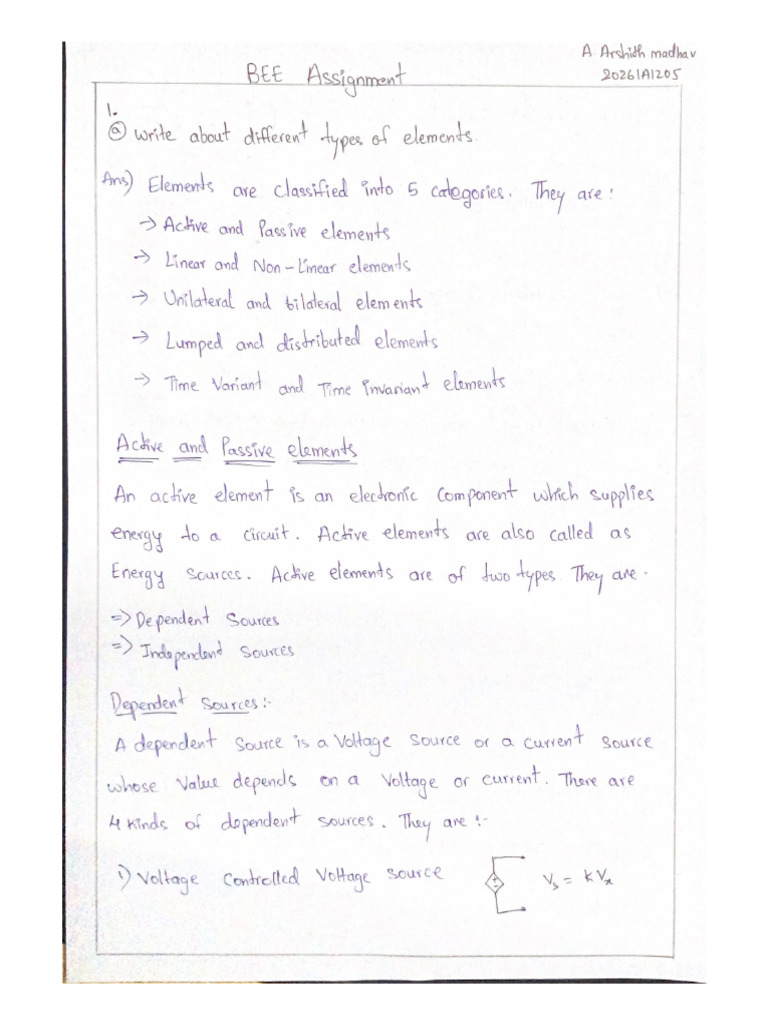 A. Arshith madhav
BEE Assignment
20261A1205
1.
ⓐ write about different types of elements.
Ans) Elements are classified into 5 categories. They are :
→ Active and Passive elements
→ Linear and Non-Linear elements
→ Unilateral and bilateral elements
→ Lumped and distributed elements
→ Time Variant and Time Invariant elements
Active and Passive elements
An active element is an electronic component which supplies
energy to a circuit. Active elements are also called as
Energy sources. Active elements are of two types They are.
=> Dependent Sources
=> Independent Sources
Dependent Sources:-
A dependent source is a Voltage source or a current source
whose Value depends on a Voltage or current. There are
4 kinds of dependent sources. They are :-
1) Voltage Controlled Voltage source
Vs = KVx